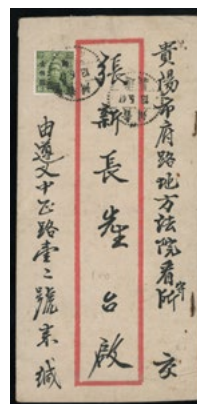 貴陽市府路地方法院看守所 交
張新長先生 台啟
由遵义中正路壹二號宋緘